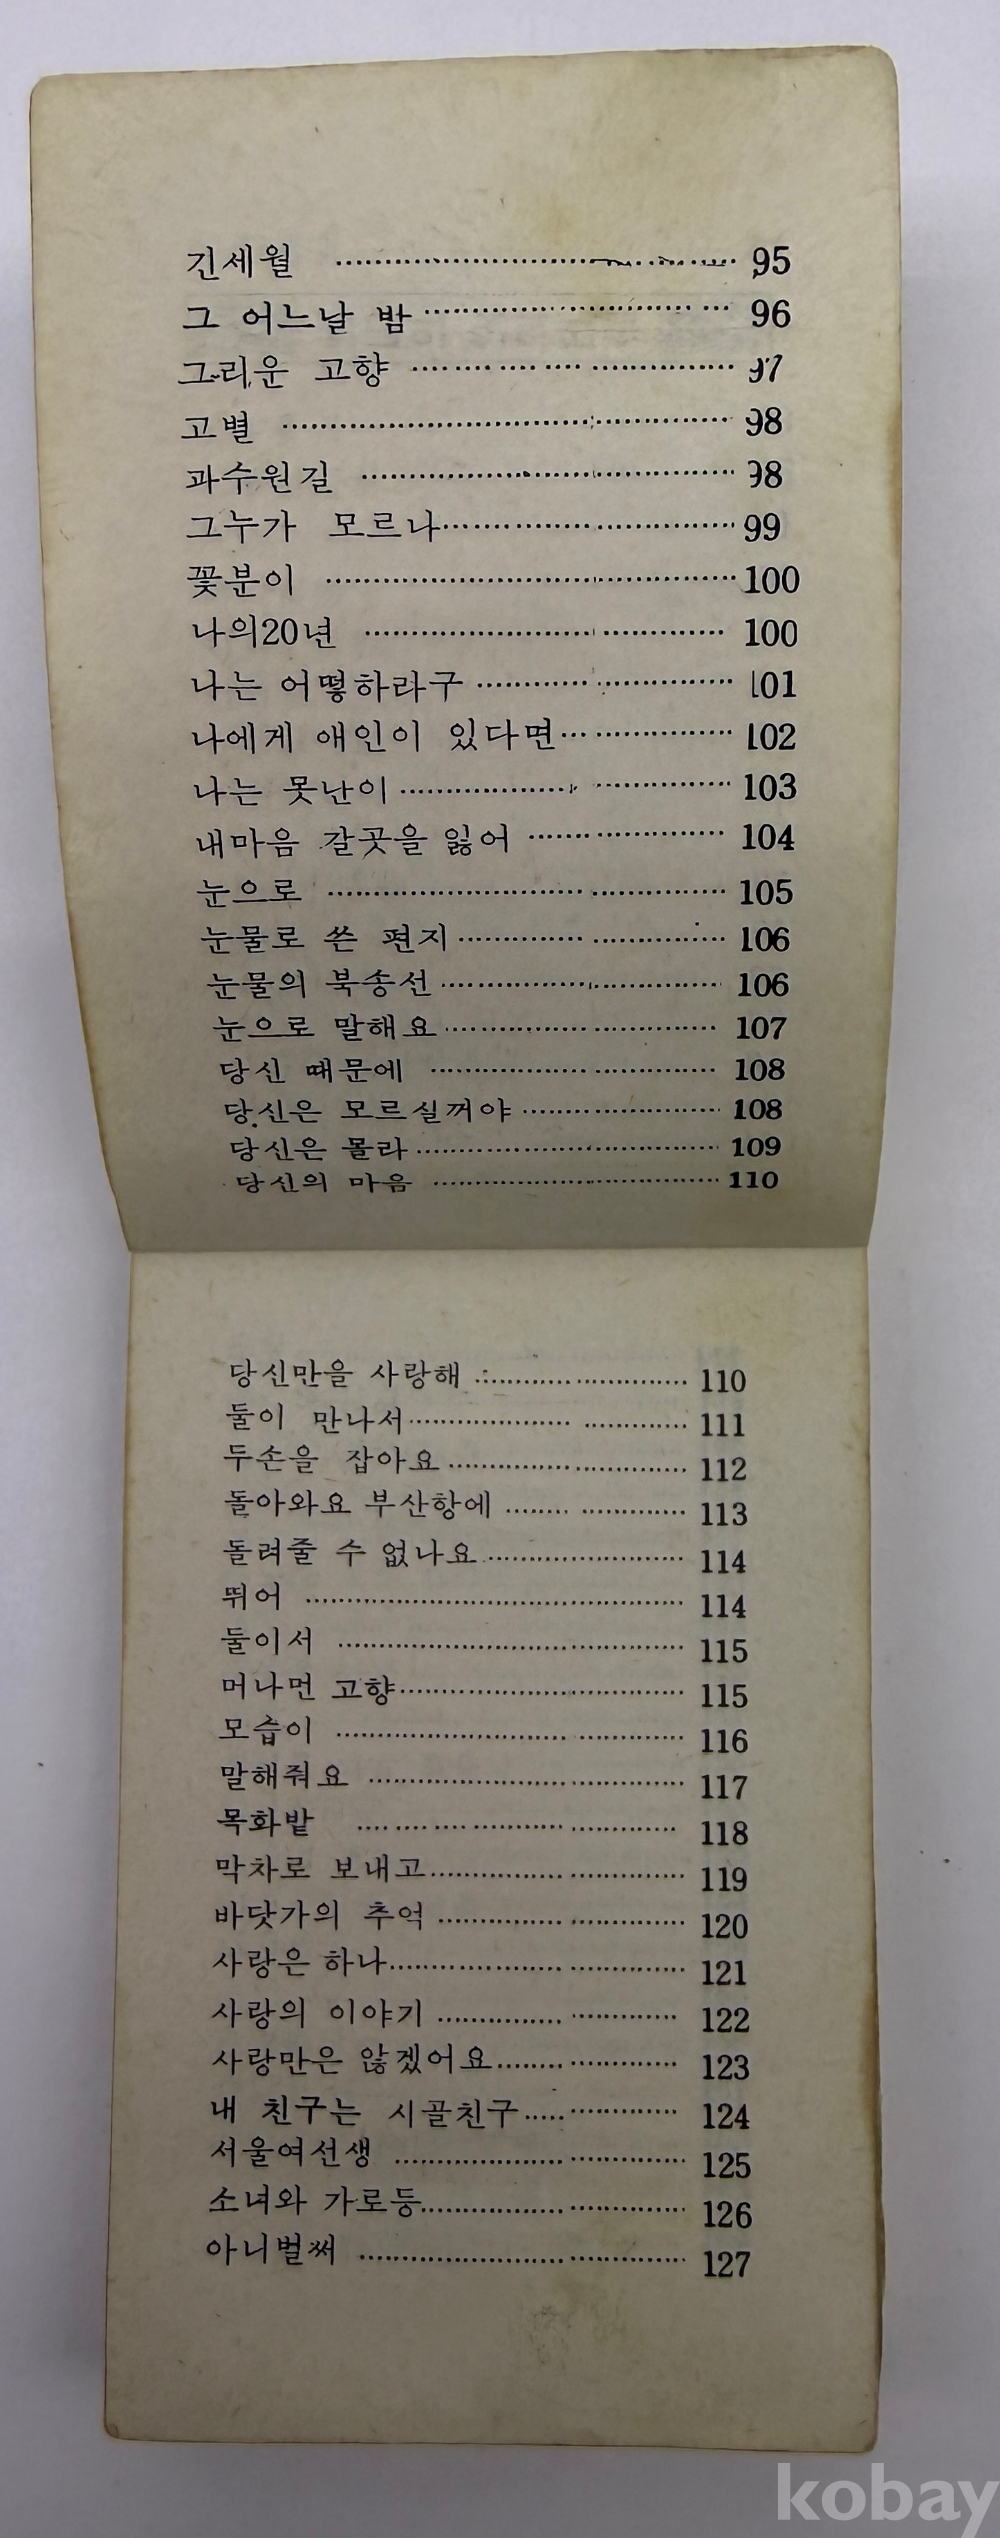 긴세월 ........................................ 95
그 어느날 밤 ........................................ 96
그리운 고향 ........................................ 97
고별 ........................................ 98
과수원길 ........................................ 98
그누가 모르나 ........................................ 99
꽃분이 ........................................ 100
나의20년 ........................................ 100
나는 어떻하라구 ........................................ 101
나에게 애인이 있다면 ........................................ 102
나는 못난이 ........................................ 103
내마음 갈곳을 잃어 ........................................ 104
눈으로 ........................................ 105
눈물로 쓴 편지 ........................................ 106
눈물의 북송선 ........................................ 106
눈으로 말해요 ........................................ 107
당신 때문에 ........................................ 108
당신은 모르실꺼야 ........................................ 108
당신은 몰라 ........................................ 109
당신의 마음 ........................................ 110
당신만을 사랑해 ........................................ 110
둘이 만나서 ........................................ 111
두손을 잡아요 ........................................ 112
돌아와요 부산항에 ........................................ 113
돌려줄 수 없나요 ........................................ 114
뛰어 ........................................ 114
둘이서 ........................................ 115
머나먼 고향 ........................................ 115
모습이 ........................................ 116
말해줘요 ........................................ 117
목화밭 ........................................ 118
막차로 보내고 ........................................ 119
바닷가의 추억 ........................................ 120
사랑은 하나 ........................................ 121
사랑의 이야기 ........................................ 122
사랑만은 않겠어요 ........................................ 123
내 친구는 시골친구 ........................................ 124
서울여선생 ........................................ 125
소녀와 가로등 ........................................ 126
아니벌써 ........................................ 127
kobay